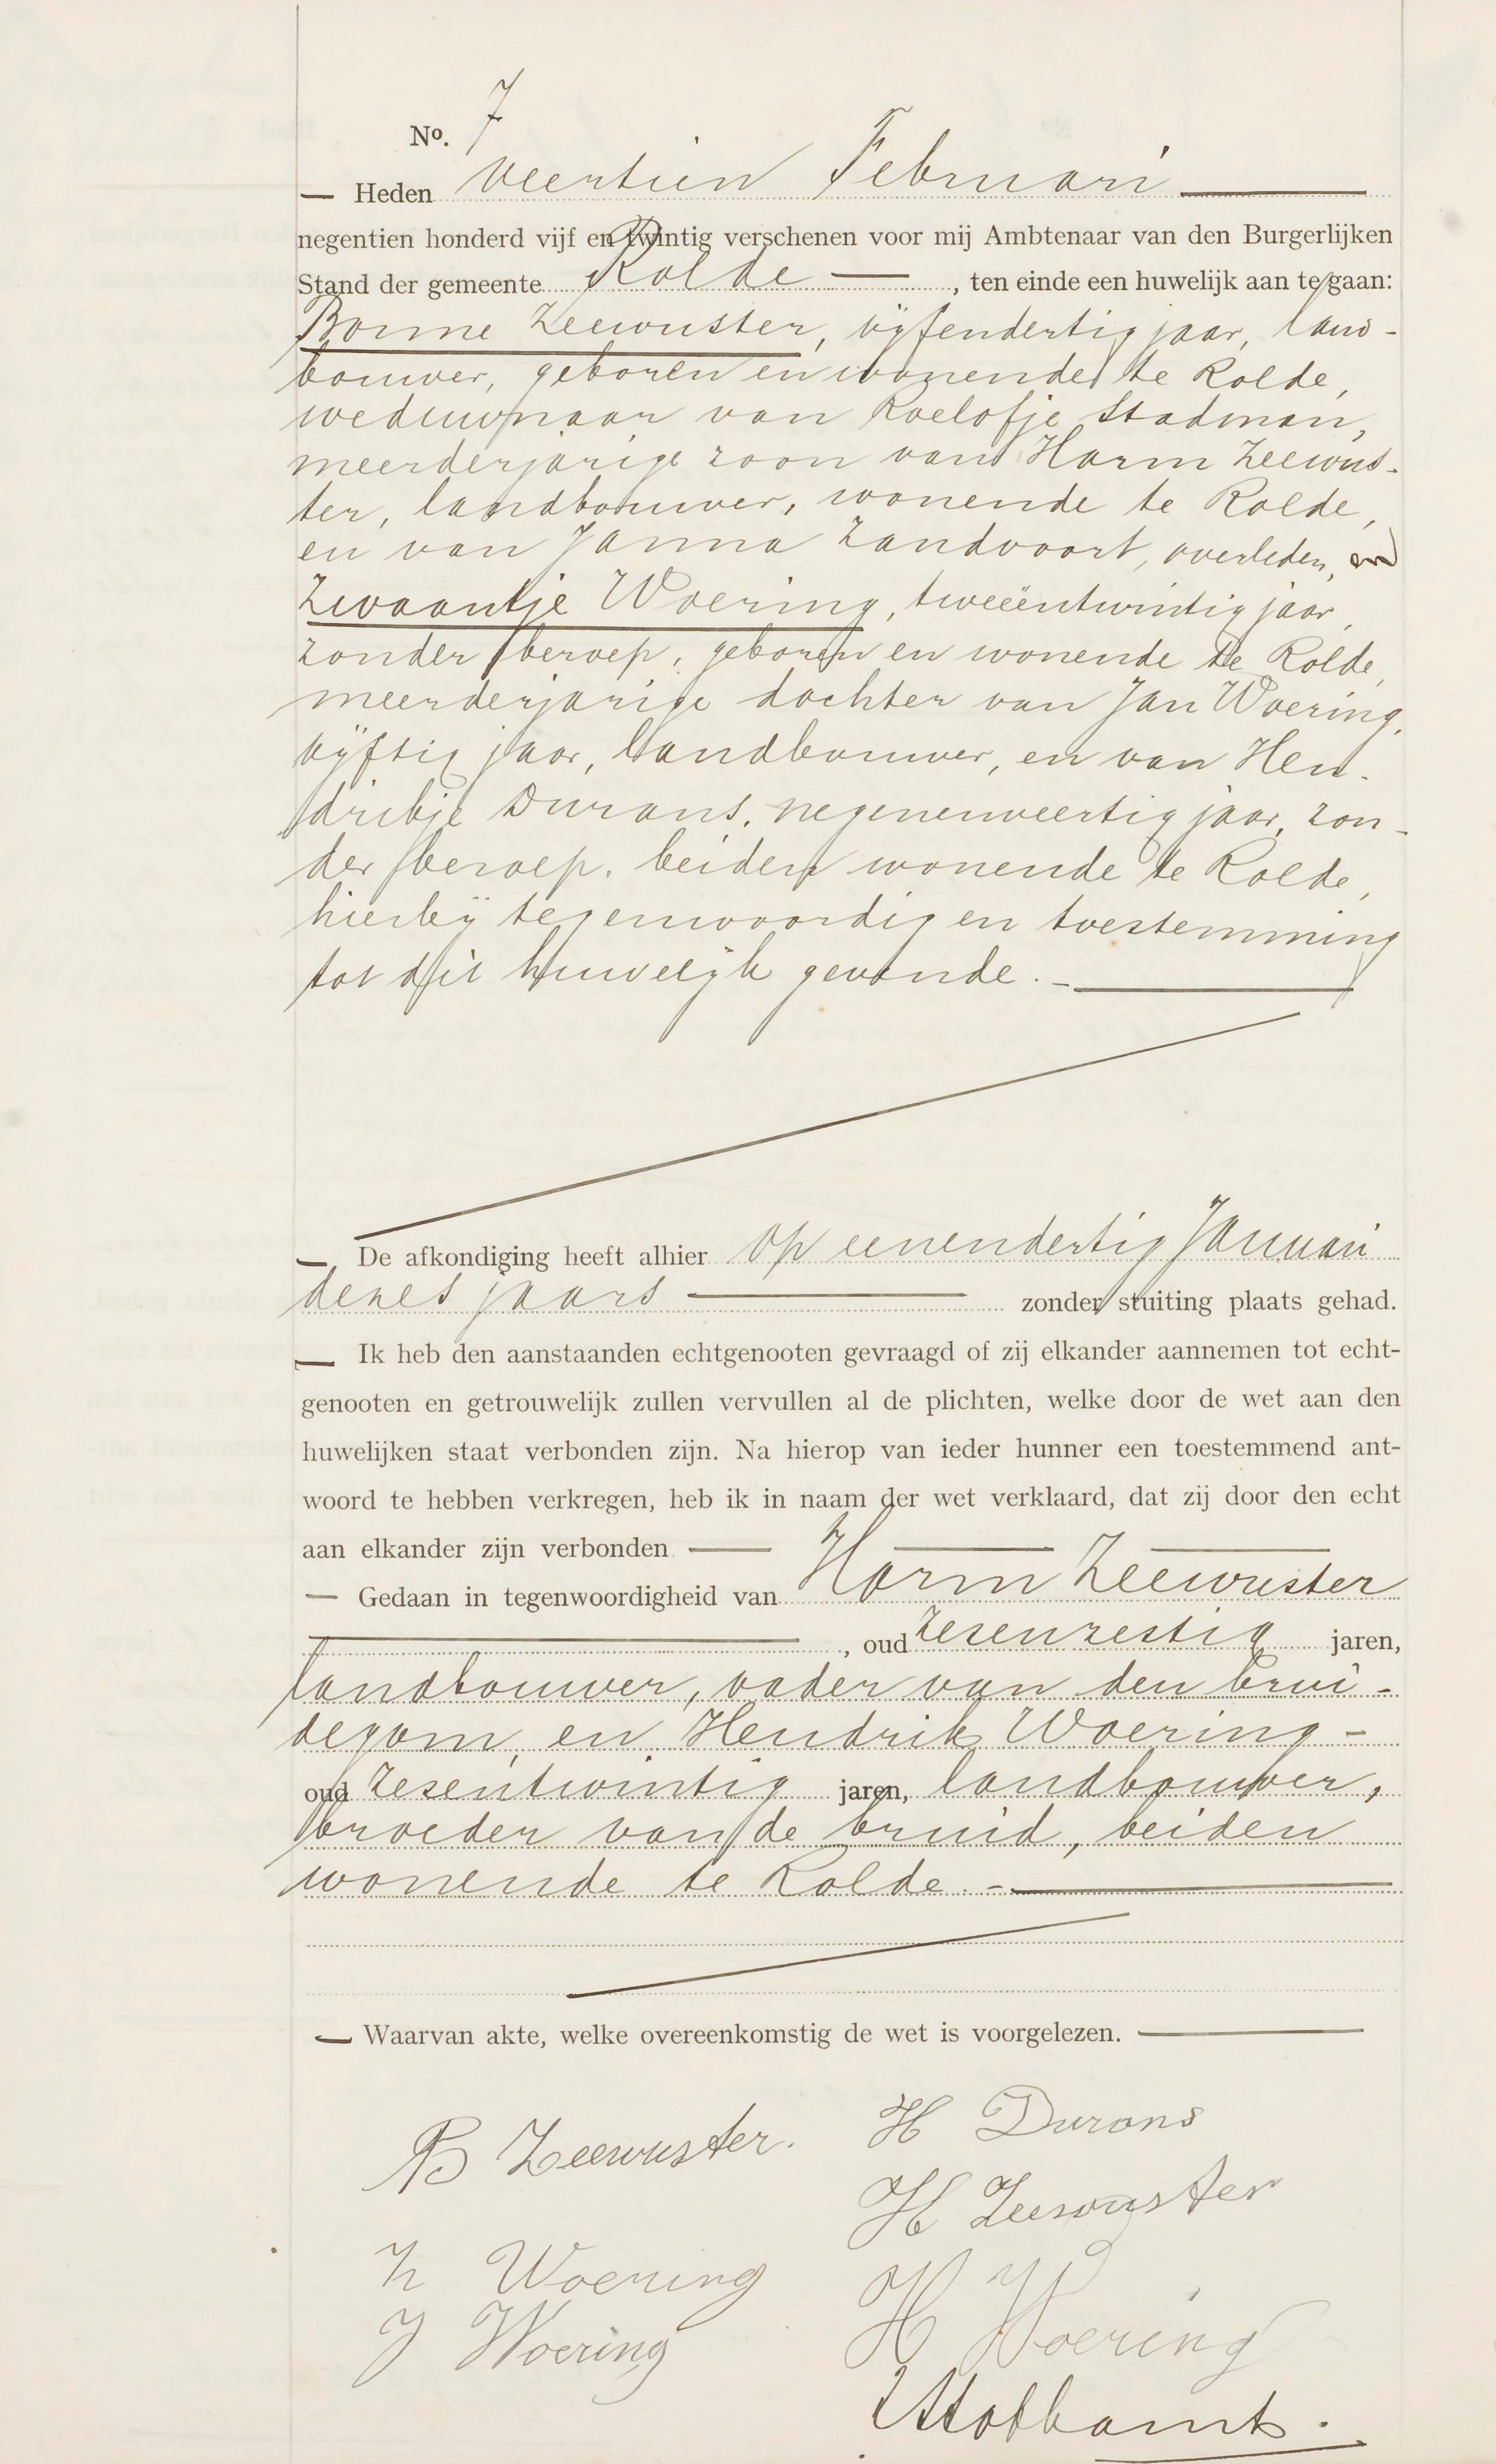 No. 7
— Heden veertien Februari —
negentien honderd vijf en twintig verschenen voor mij Ambtenaar van den Burgerlijken
Stand der gemeente Rolde —, ten einde een huwelijk aan te gaan:
Bonne Zeewuster, vijfendertig jaar, land-
bouwer, geboren en wonende te Rolde,
weduwnaar van Roelofje Stadman,
meerderjarige zoon van Harm Zeewus-
ter, landbouwer, wonende te Rolde,
en van Janna Zandvoort, overleden, en
Zwaantje Woering, tweeëntwintig jaar,
zonder beroep, geboren en wonende te Rolde,
meerderjarige dochter van Jan Woering,
vijftig jaar, landbouwer, en van Hen-
drikje Durans, negenenveertig jaar, zon-
der beroep, beiden wonende te Rolde,
hierbij tegenwoordig en toestemming
tot dit huwelijk gevende. —
— De afkondiging heeft alhier op eenendertig Januari
dezes jaars — zonder stuiting plaats gehad.
— Ik heb den aanstaanden echtgenooten gevraagd of zij elkander aannemen tot echt-
genooten en getrouwelijk zullen vervullen al de plichten, welke door de wet aan den
huwelijken staat verbonden zijn. Na hierop van ieder hunner een toestemmend ant-
woord te hebben verkregen, heb ik in naam der wet verklaard, dat zij door den echt
aan elkander zijn verbonden —
— Gedaan in tegenwoordigheid van Harm Zeewuster
—, oud zesenzestig jaren,
landbouwer, vader van den brui-
degom, en Hendrik Woering -
oud zesentwintig jaren, landbouwer,
broeder van de bruid, beiden
wonende te Rolde. —
— Waarvan akte, welke overeenkomstig de wet is voorgelezen. —
B Zeewuster. H Durans
H Zeewuster
Z Woering
J Woering H Woering